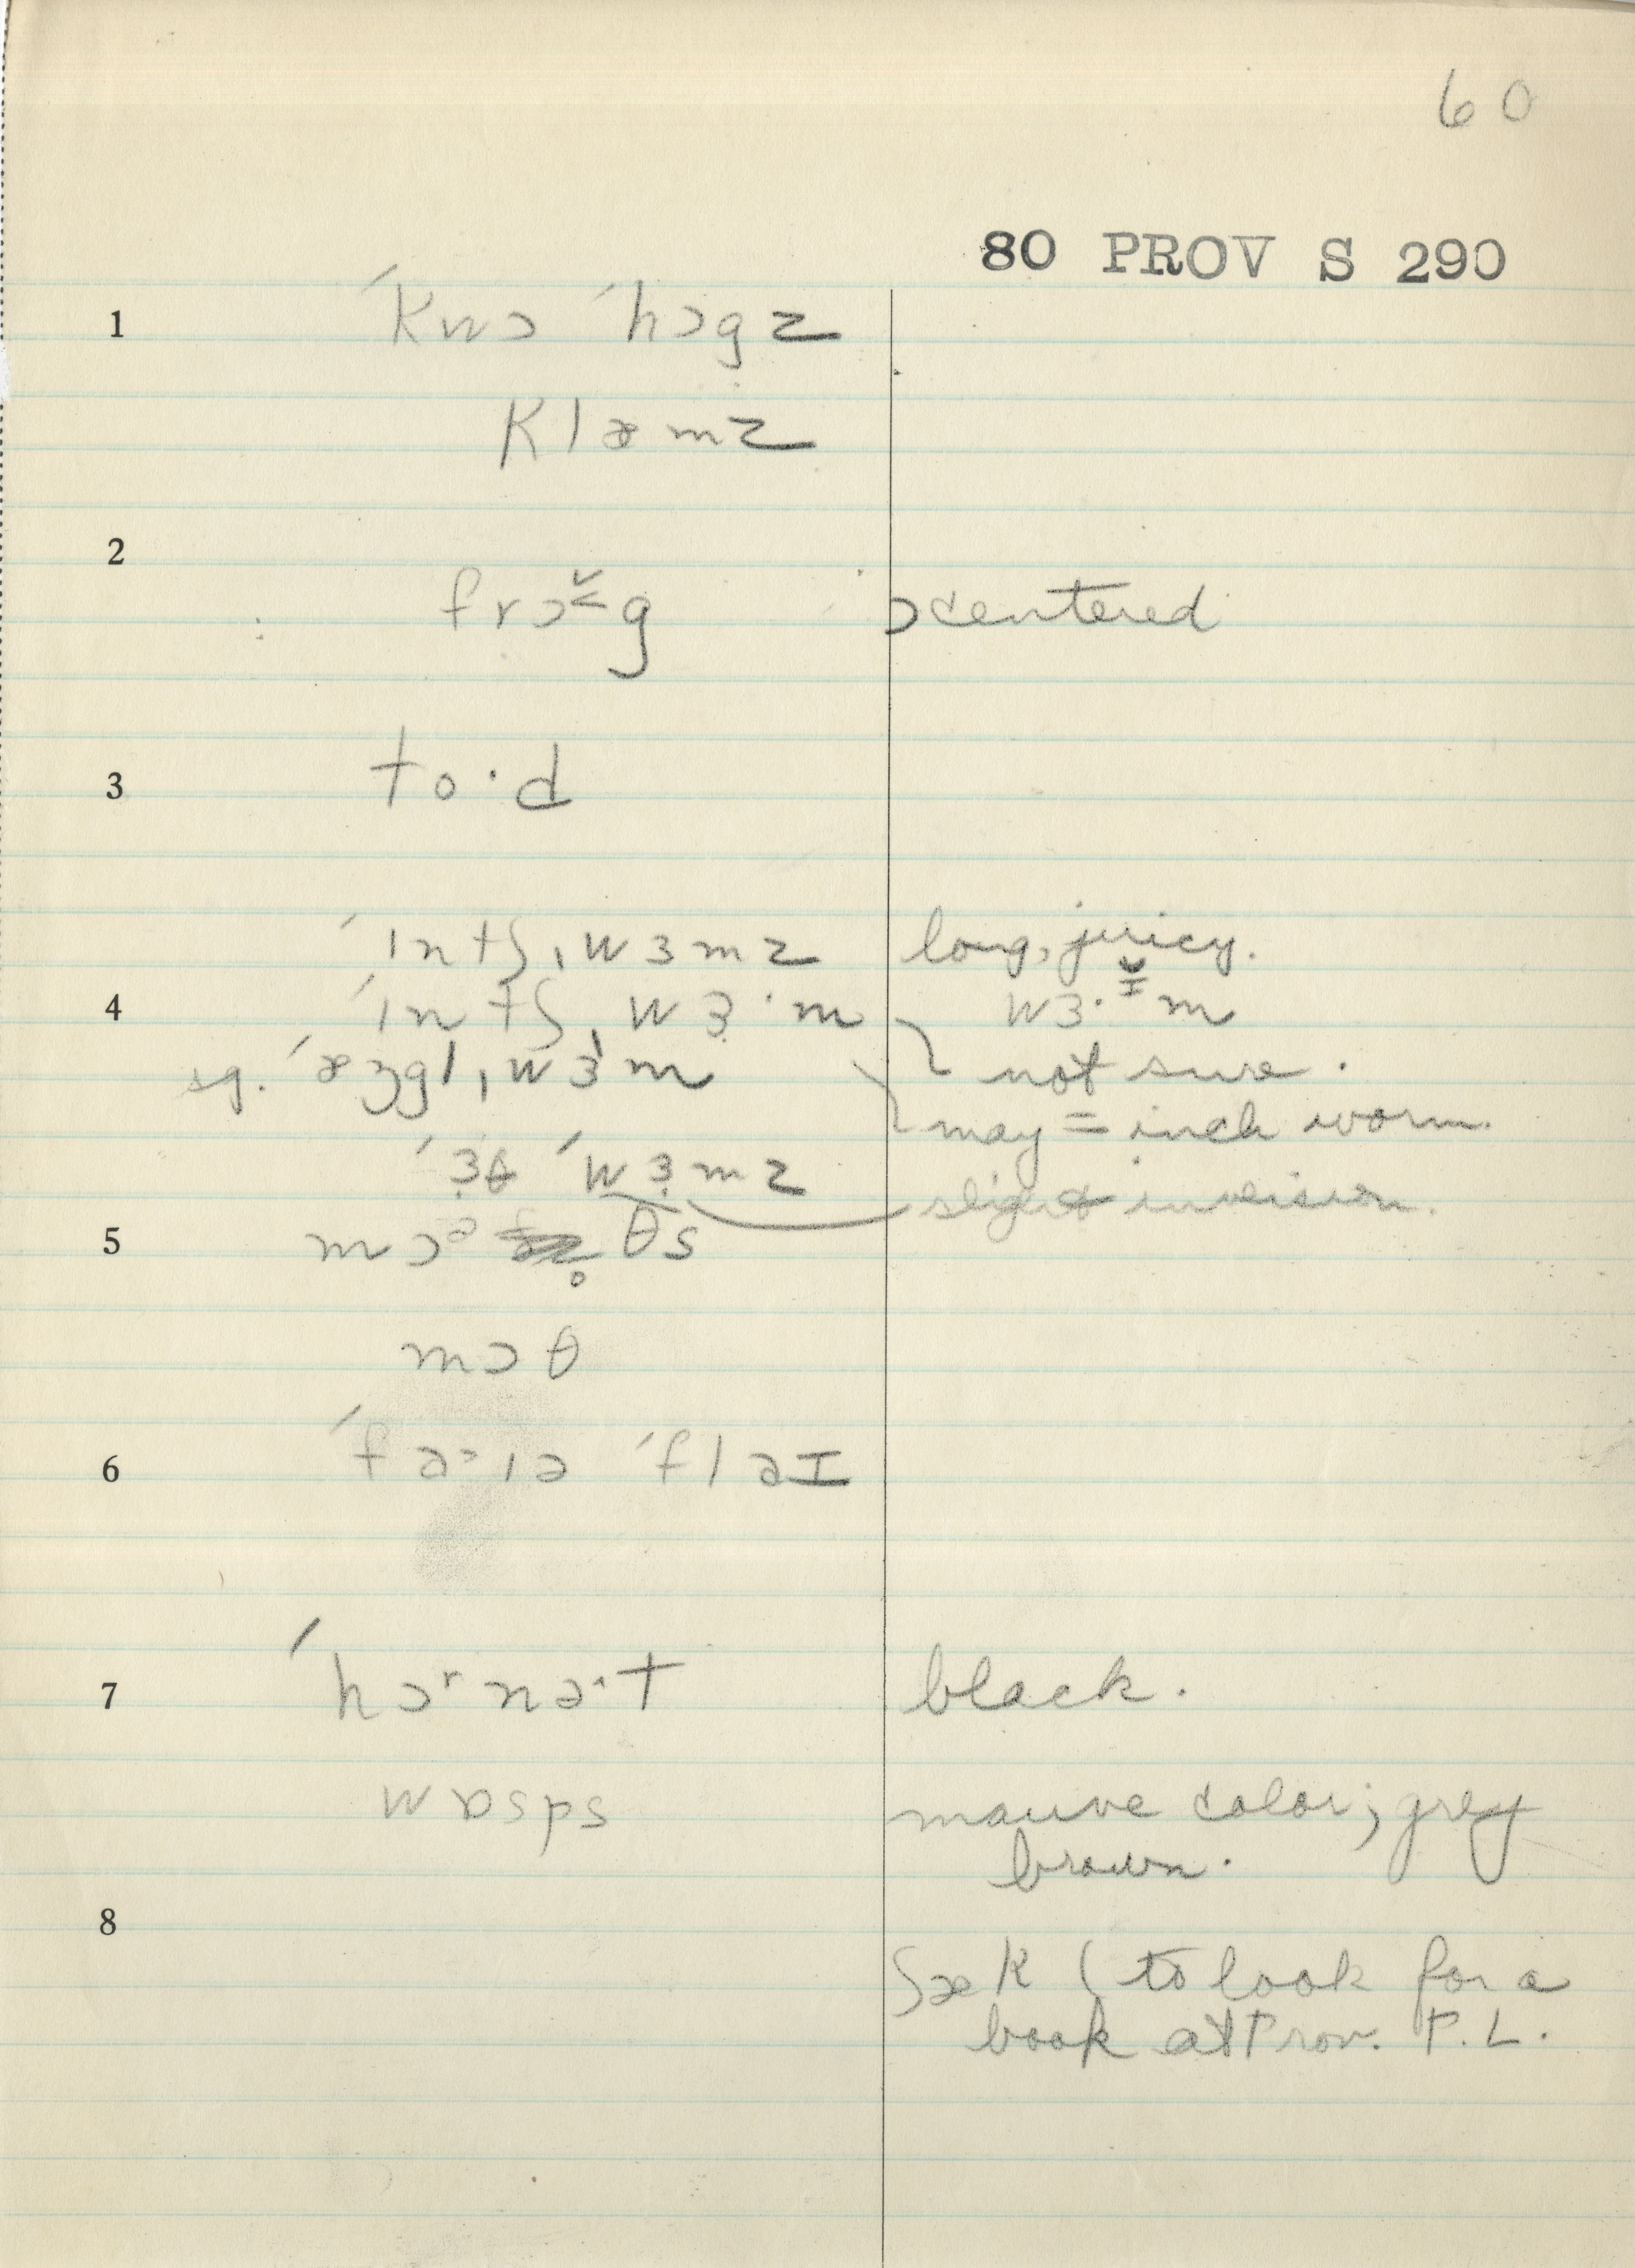 60
80 PROV S 290
1 ˈkwɔ ˈhɔgz
klæmz
2
frɔ˂̌g ɔ centered
3 to·d
ˈɪntʃˌwɜmz long, juicy.
4 ˈɪntʃˌwɜ̣·m wɜ·ɪ̯̆m
sg. ˈæŋglˌwɜm not sure.
may = inch worm.
ˈɜ̣θ ˈwɜ̣mz slight inversion.
5 mɔᵊ θs
mɔθ
6 ˈfa˃ɪə ˈflaɪ
7 ˈhɔʳnə˔t black.
wɒsps mauve color; grey
brown.
8
ʃæk (to look for a
book at Prov. P. L.